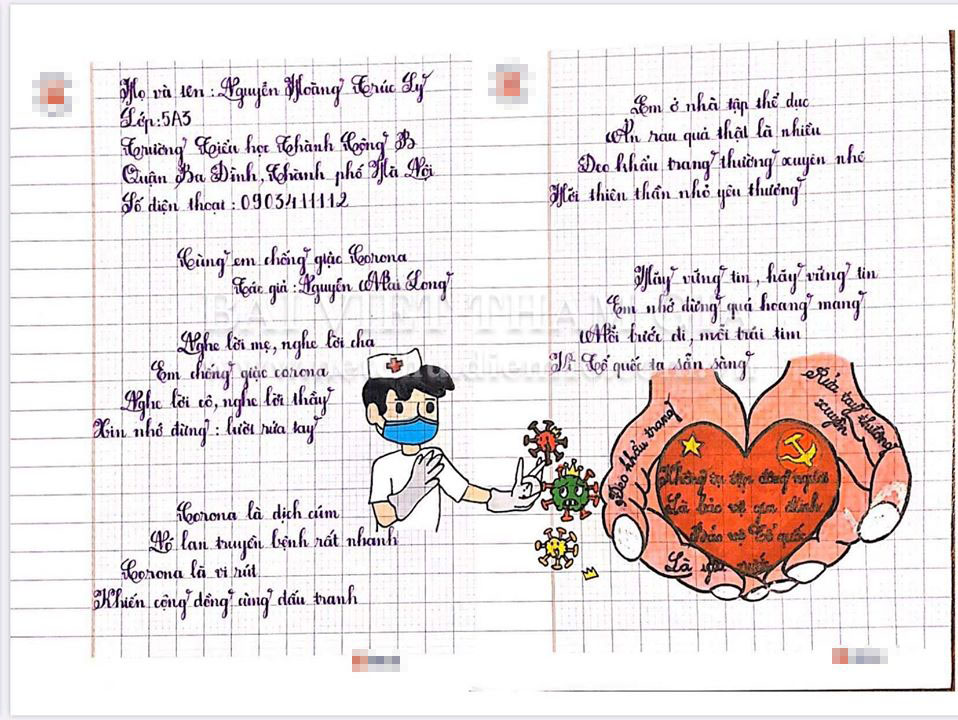 Họ và tên : Nguyễn Hoàng Trúc Ly
Lớp : 5A3
Trường Tiểu học Thành Công B
Quận Ba Đình, Thành phố Hà Nội
Số điện thoại : 0903411112
Cùng em chống giặc Corona
Tác giả : Nguyễn Mai Long
Nghe lời mẹ, nghe lời cha
Em chống giặc corona
Nghe lời cô, nghe lời thầy
Xin nhớ đừng : lười rửa tay
Corona là dịch cúm
Nó lan truyền bệnh rất nhanh
Corona là vi rút
Khiến cộng đồng cùng đấu tranh
Em ở nhà tập thể dục
Ăn rau quả thật là nhiều
Đeo khẩu trang thường xuyên nhé
Hỡi thiên thần nhỏ yêu thương
Hãy vững tin, hãy vững tin
Em nhớ đừng quá hoang mang
Mỗi bước đi, mỗi trái tim
Vì Tổ quốc ta sẵn sàng
Đeo khẩu trang
Rửa tay thường
xuyên
Không tụ tập đông người
Là bảo vệ gia đình
Bảo vệ Tổ quốc
Là yêu nước
BÀI VIẾT THAM